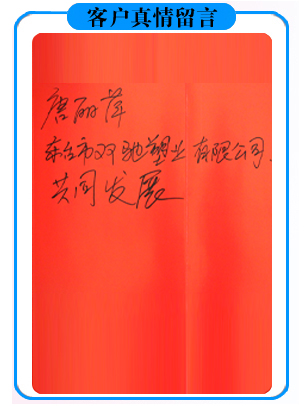 客户真情留言
唐丽萍
东台市双驰塑业有限公司.
共同发展